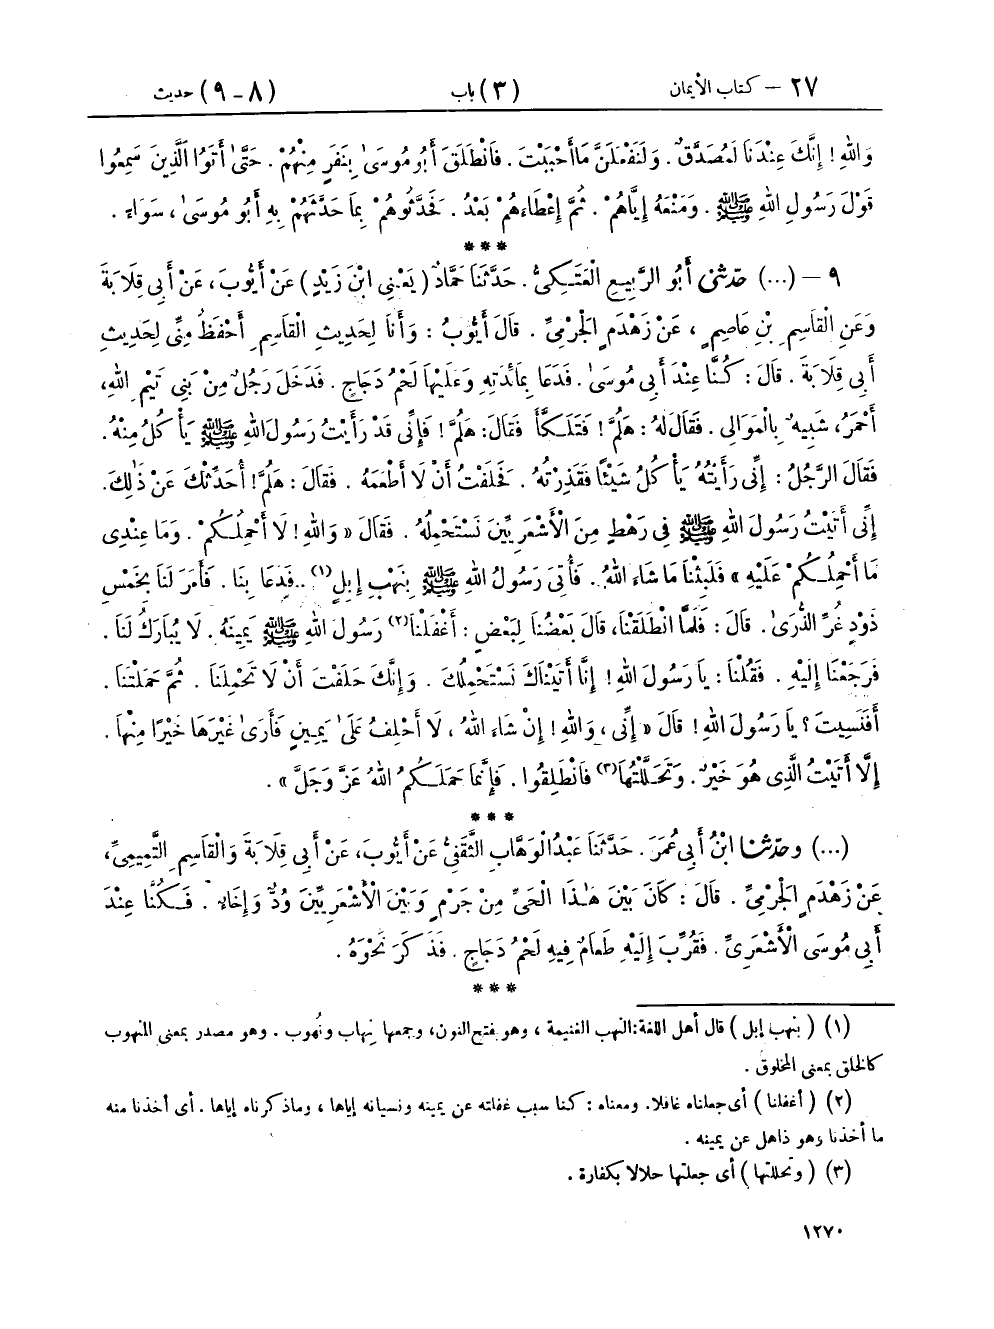 ٢٧ – كتاب الأيمان (٣) باب (٨ – ٩) حديث
وَاللهِ ! إِنَّكَ عِنْدَنَا لَمُصَدَّقٌ . وَلَنَفْعَلَنَّ مَا أَحْبَبْتَ . فَانْطَلَقَ أَبُو مُوسَىٰ بِنَفَرٍ مِنْهُمْ . حَتَّىٰ أَتَوُا الَّذِينَ سَمِعُوا
قَوْلَ رَسُولِ اللهِ ﷺ . وَمَنْعَهُ إِيَّاهُمْ . ثُمَّ إِعْطَاءَهُمْ بَعْدُ . فَحَدَّثُوهُمْ بِمَا حَدَّثَهُمْ بِهِ أَبُو مُوسَىٰ ، سَوَاءً .
***
٩ – (...) حَدَّثَنِي أَبُو الرَّبِيعِ الْعَتَكِيُّ . حَدَّثَنَا حَمَّادٌ ( يَعْنِي ابْنَ زَيْدٍ ) عَنْ أَيُّوبَ ، عَنْ أَبِي قِلَابَةَ
وَعَنِ الْقَاسِمِ بْنِ عَاصِمٍ ، عَنْ زَهْدَمٍ الْجَرْمِيِّ . قَالَ أَيُّوبُ : وَأَنَا لِحَدِيثِ الْقَاسِمِ أَحْفَظُ مِنِّي لِحَدِيثِ
أَبِي قِلَابَةَ . قَالَ : كُنَّا عِنْدَ أَبِي مُوسَىٰ . فَدَعَا بِمَائِدَتِهِ وَعَلَيْهَا لَحْمُ دَجَاجٍ . فَدَخَلَ رَجُلٌ مِنْ بَنِي تَيْمِ اللهِ،
أَحْمَرُ، شَبِيهٌ بِالْمَوَالِي . فَقَالَ لَهُ : هَلُمَّ ! فَتَلَكَّأَ فَقَالَ: هَلُمَّ ! فَإِنِّي قَدْ رَأَيْتُ رَسُولَ اللهِ ﷺ يَأْكُلُ مِنْهُ.
فَقَالَ الرَّجُلُ : إِنِّي رَأَيْتُهُ يَأْكُلُ شَيْئًا فَقَذِرْتُهُ . فَحَلَفْتُ أَنْ لَا أَطْعَمَهُ . فَقَالَ : هَلُمَّ ! أُحَدِّثْكَ عَنْ ذَٰلِكَ.
إِنِّي أَتَيْتُ رَسُولَ اللهِ ﷺ فِي رَهْطٍ مِنَ الْأَشْعَرِيِّينَ نَسْتَحْمِلُهُ . فَقَالَ « وَاللهِ ! لَا أَحْمِلُكُمْ . وَمَا عِنْدِي
مَا أَحْمِلُكُمْ عَلَيْهِ » فَلَبِثْنَا مَا شَاءَ اللهُ . فَأُتِيَ رَسُولُ اللهِ ﷺ بِنَهْبِ إِبِلٍ (١) . فَدَعَا بِنَا . فَأَمَرَ لَنَا بِخَمْسِ
ذَوْدٍ غُرِّ الذُّرَىٰ . قَالَ : فَلَمَّا انْطَلَقْنَا، قَالَ بَعْضُنَا لِبَعْضٍ : أَغْفَلْنَا (٢) رَسُولَ اللهِ ﷺ يَمِينَهُ . لَا يُبَارَكُ لَنَا .
فَرَجَعْنَا إِلَيْهِ . فَقُلْنَا : يَا رَسُولَ اللهِ ! إِنَّا أَتَيْنَاكَ نَسْتَحْمِلُكَ . وَإِنَّكَ حَلَفْتَ أَنْ لَا تَحْمِلَنَا . ثُمَّ حَمَلْتَنَا .
أَفَنَسِيتَ ؟ يَا رَسُولَ اللهِ ! قَالَ « إِنِّي ، وَاللهِ ! إِنْ شَاءَ اللهُ ، لَا أَحْلِفُ عَلَىٰ يَمِينٍ فَأَرَىٰ غَيْرَهَا خَيْرًا مِنْهَا .
إِلَّا أَتَيْتُ الَّذِي هُوَ خَيْرٌ . وَتَحَلَّلْتُهَا (٣) فَانْطَلِقُوا . فَإِنَّمَا حَمَلَكُمُ اللهُ عَزَّ وَجَلَّ » .
***
(...) وحَدَّثَنَا ابْنُ أَبِي عُمَرَ . حَدَّثَنَا عَبْدُ الْوَهَّابِ الثَّقَفِيُّ عَنْ أَيُّوبَ، عَنْ أَبِي قِلَابَةَ وَالْقَاسِمِ التَّمِيمِيِّ،
عَنْ زَهْدَمٍ الْجَرْمِيِّ . قَالَ : كَانَ بَيْنَ هَٰذَا الْحَيِّ مِنْ جَرْمٍ وَبَيْنَ الْأَشْعَرِيِّينَ وُدٌّ وَإِخَاءٌ . فَكُنَّا عِنْدَ
أَبِي مُوسَى الْأَشْعَرِيِّ . فَقُرِّبَ إِلَيْهِ طَعَامٌ فِيهِ لَحْمُ دَجَاجٍ . فَذَكَرَ نَحْوَهُ .
***
(١) ( بنهب إبل ) قال أهل اللغة: النهب الغنيمة ، وهو بفتح النون، وجمعها نِهاب ونُهوب . وهو مصدر بمعنى المنهوب
كالخلق بمعنى المخلوق .
(٢) ( أغفلنا ) أى جعلناه غافلا. ومعناه : كنا سبب غفلته عن يمينه ونسيانه إياها ، وما ذكرناه إياها . أى أخذنا منه
ما أخذنا وهو ذاهل عن يمينه .
(٣) ( وتحللتها ) أى جعلتها حلالا بكفارة .
١٢٧٠